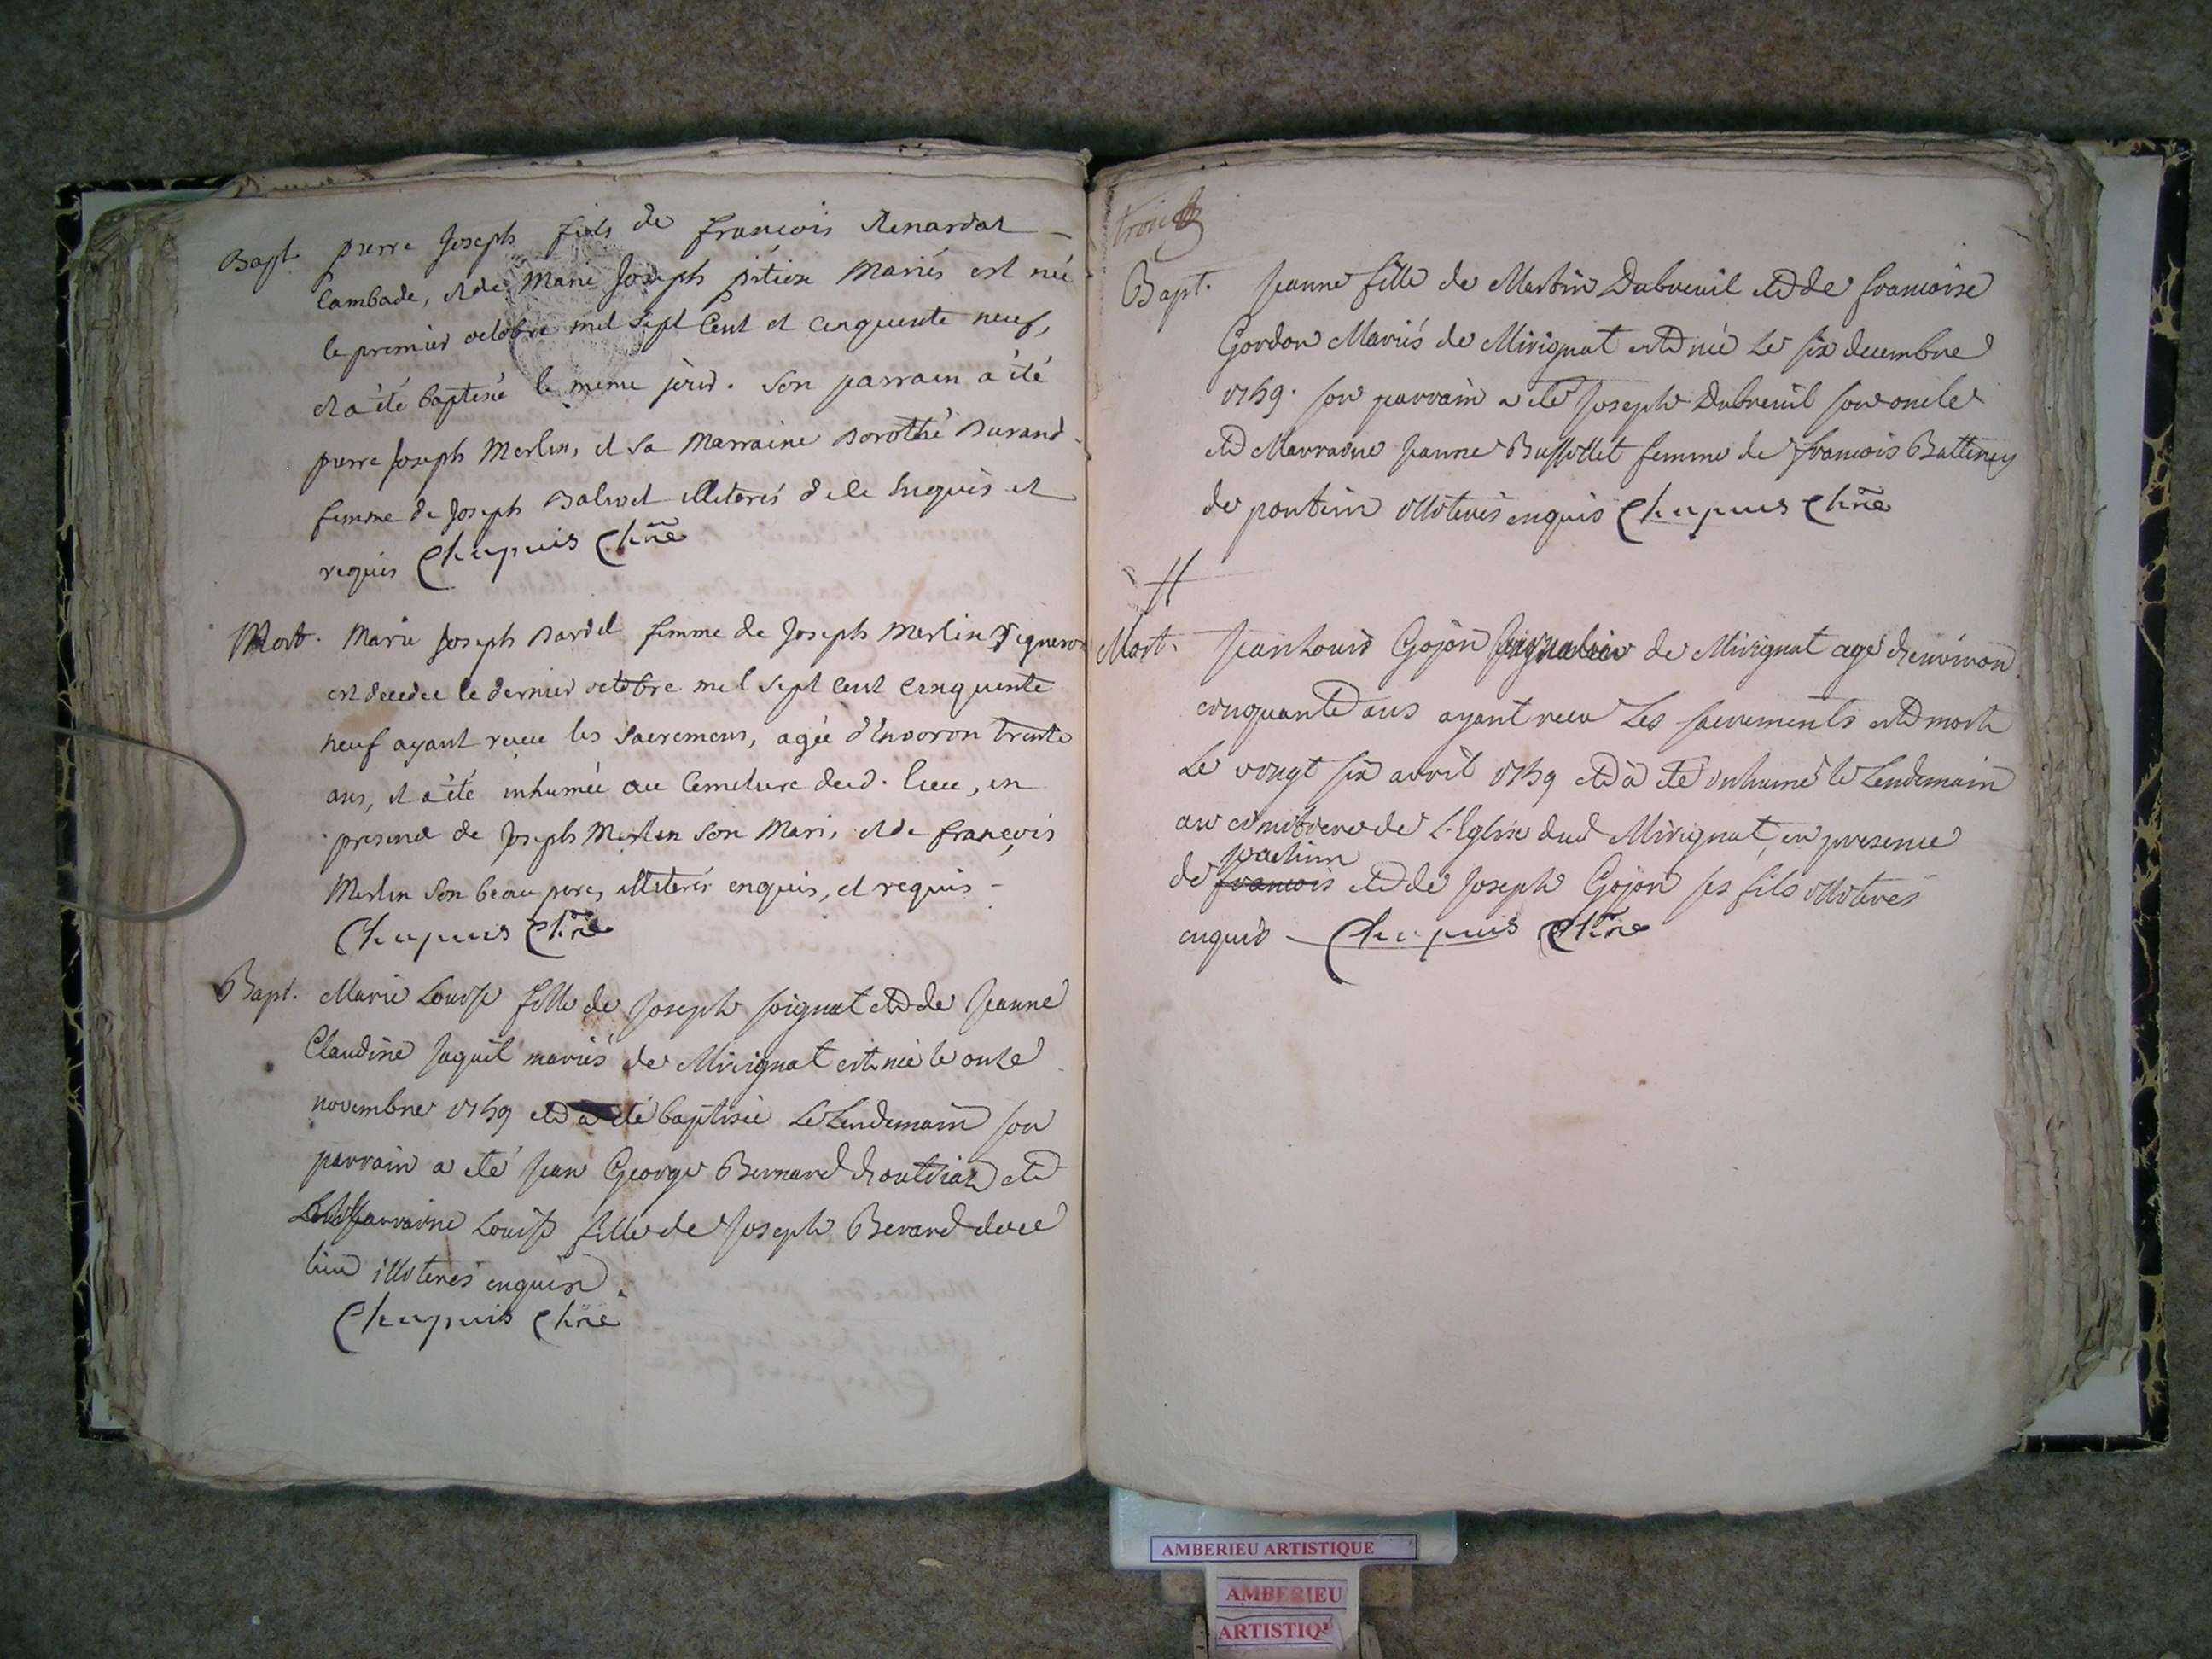 Bapt. pierre Joseph fils de francois Renardat
Cambade, et de Marie Joseph pitiox Mariés est né
le premier octobre mil sept Cent et cinquente neuf,
et a été baptisé le meme jour. Son parrain a été
pierre Joseph Merlin, et Sa Marraine Dorothé Durand
femme de Joseph illiterés de le Enquis et
requis Chapuis Cûré
Mort. Marie Joseph Bardel femme de Joseph Merlin Vigneron
est decedee le dernier octobre mil sept cent cinquente
neuf ayant recue les Sacremens, agée d'Environ trente
ans, et a été inhumée au Cemetiere dud. lieu, en
presence de Joseph Merlin Son Mari, et de françois
Merlin Son beau pere, illiterés enquis, et requis -
Chapuis Cûré
Bapt. Marie Louise fille de Joseph soignat et de Jeanne
Claudine Jaquil mariés de Mirignat est née le onze
novembre 1759 et a été baptisée Le Lendemain son
parrain a eté Jean George Bernard et
marraine Louise fille de Joseph Berard dud
lieu illiterés enquis.
Chapuis Cûré
Bapt. Jeanne fille de Martin Dubreuil et de francoise
Gordon Mariés de Mirignat est née Le six decembre
1759. son parrain a eté Joseph Dubreuil son oncle
et Marraine Jeanne femme de francois
de poncin illiterés enquis Chapuis Cûré
Mort. Jean Louis Gojon de Mirignat agé d'environ
cinquante ans ayant recu Les sacrements est mort
Le vingt six avril 1759 et a été inhumé le Lendemain
au cimitiere de L'Eglise dud Mirignat en presence
joachim
de francois et de Joseph Gojon ses fils illiterés
enquis Chapuis Cûré
AMBERIEU ARTISTIQUE
AMBERIEU
ARTISTIQ